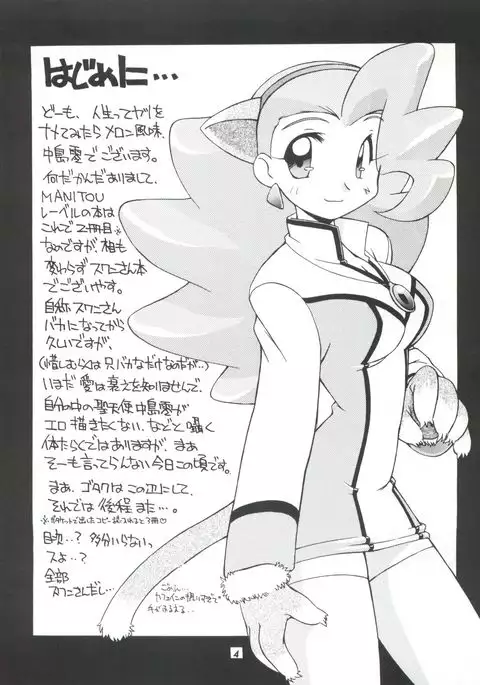 はじめに…
どーも、人生ってヤツを
ナメてみたらメロン風味、
中島零でございます。
何だかんだありまして、
MANITOU
レーベルの本は
これで2冊目※
なのですが、相も
変わらずスワンさん本
でございやす。
自称スワンさん
バカになってから
久しいですが、
(惜しむらくは只バカなだけなのだが…)
いまだ愛は衰えを知りませんで、
自分の中の聖天使中島零が
エロ描きたくない、などと囁く
体たらくではありますが、まあ
そーも言ってらんない今日この頃です。
まあ、ゴタクはこの辺にして、
それでは後程また…。
目次…? 多分いらないっ
スよ…?
全部
スワンさんだし…
ごめん…
手がふるえる…
4